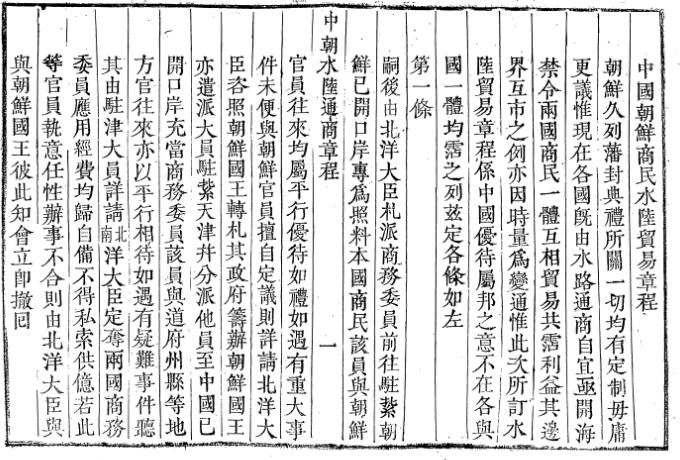 中國朝鮮商民水陸貿易章程
朝鮮久列藩封典禮所關一切均有定制毋庸
更議惟現在各國旣由水路通商自宜亟開海
禁令兩國商民一體互相貿易共霑利益其邊
界互市之例亦因時量爲變通惟此次所訂水
陸貿易章程係中國優待屬邦之意不在各與
國一體均霑之列茲定各條如左
第一條
嗣後由北洋大臣札派商務委員前往駐紮朝
鮮已開口岸專爲照料本國商民該員與朝鮮
中朝水陸通商章程 一
官員往來均屬平行優待如禮如遇有重大事
件未便與朝鮮官員擅自定議則詳請北洋大
臣咨照朝鮮國王轉札其政府籌辦朝鮮國王
亦遣派大員駐紮天津幷分派他員至中國已
開口岸充當商務委員該員與道府州縣等地
方官往來亦以平行相待如遇有疑難事件聽
其由駐津大員詳請北南洋大臣定奪兩國商務
委員應用經費均歸自備不得私索供億若此
等官員執意任性辦事不合則由北洋大臣與
與朝鮮國王彼此知會立卽撤回